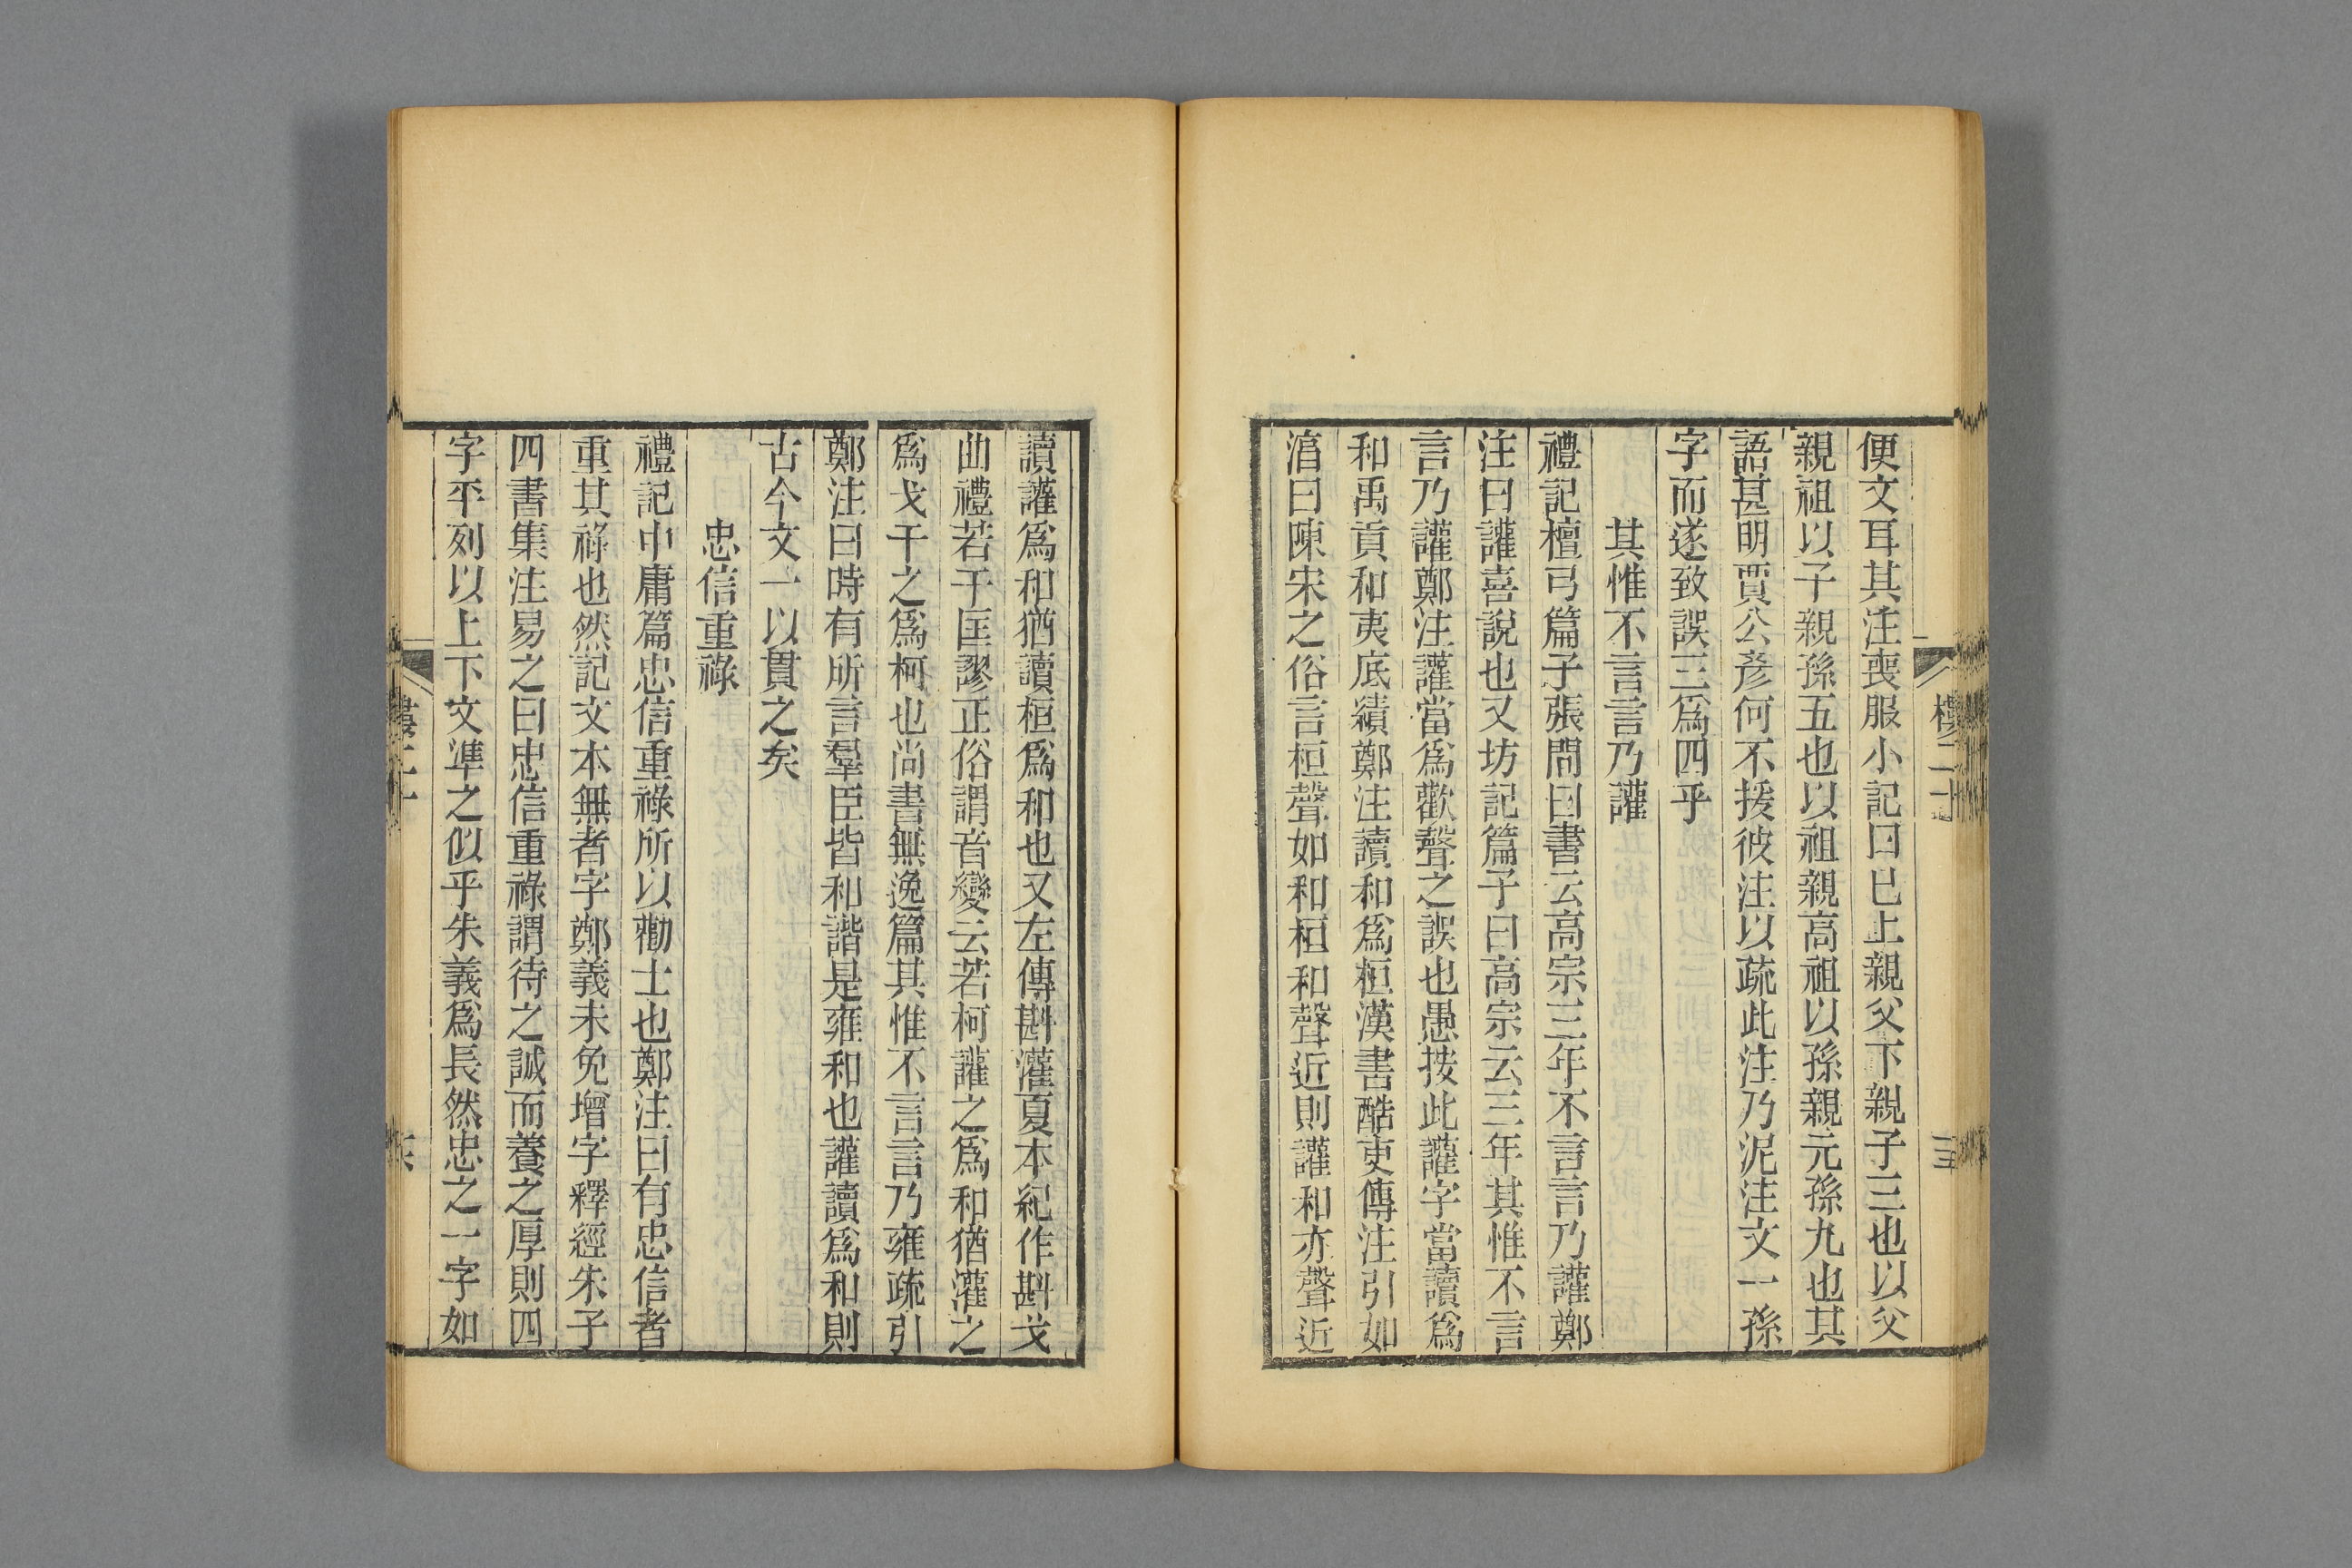 便文耳其注喪服小記曰已上親父下親子三也以父
親祖以子親孫五也以祖親高祖以孫親元孫九也其
語甚明賈公彥何不援彼注以疏此注乃泥注文一孫
字而遂致誤三爲四乎
其惟不言言乃讙
禮記檀弓篇子張問曰書云高宗三年不言言乃讙鄭
注曰讙喜說也又坊記篇子曰高宗云三年其惟不言
言乃讙鄭注讙當爲歡聲之誤也愚按此讙字當讀爲
和禹貢和夷底績鄭注讀和爲桓漢書酷吏傳注引如
淳曰陳宋之俗言桓聲如和桓和聲近則讙和亦聲近
讀讙爲和猶讀桓爲和也又左傳斟灌夏本紀作斟戈
曲禮若干匡謬正俗謂音變云若柯讙之爲和猶灌之
爲戈干之爲柯也尚書無逸篇其惟不言言乃雍疏引
鄭注曰時有所言羣臣皆和諧是雍和也讙讀爲和則
古今文一以貫之矣
忠信重祿
禮記中庸篇忠信重祿所以勸士也鄭注曰有忠信者
重其祿也然記文本無者字鄭義未免增字釋經朱子
四書集注易之曰忠信重祿謂待之誠而養之厚則四
字平列以上下文準之似乎朱義爲長然忠之一字如